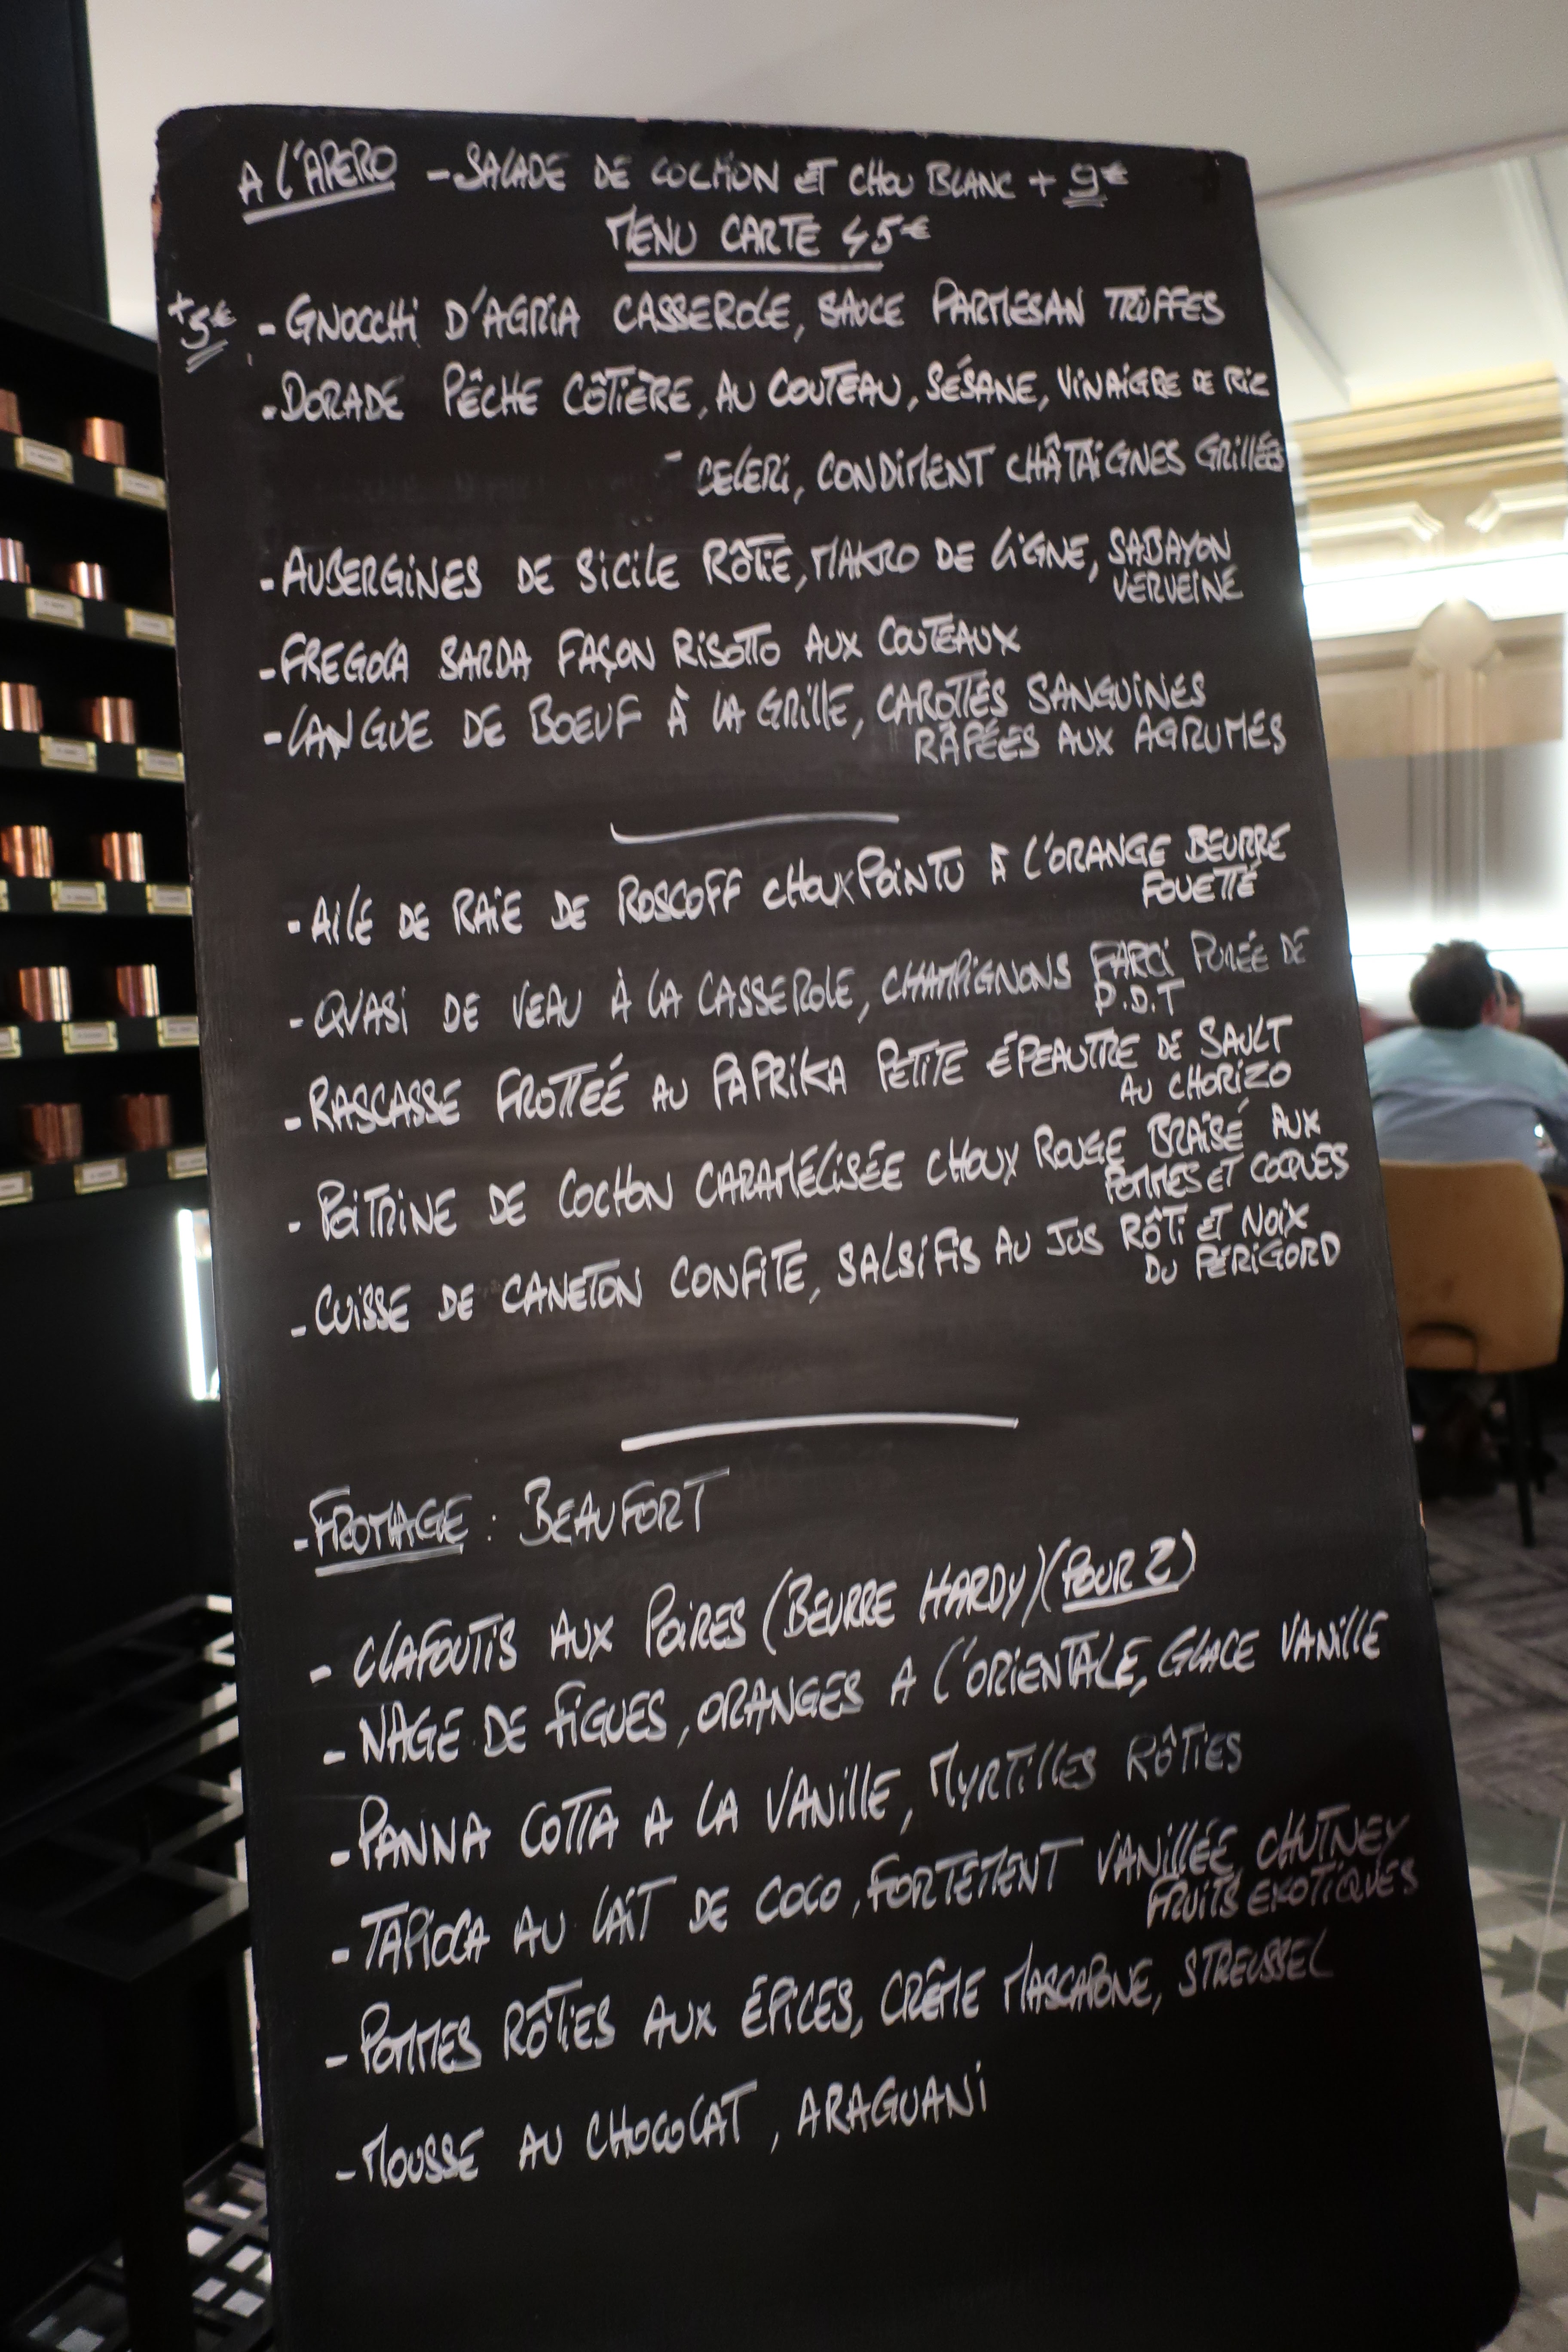 A L'APERO - SALADE DE COCHON ET CHOU BLANC + 9€
MENU CARTE 45€
+5€ - GNOCCHI D'AGRIA CASSEROLE, SAUCE PARMESAN TRUFFES
- DORADE PÊCHE CÔTIÈRE, AU COUTEAU, SÉSAME, VINAIGRE DE RIZ
- CELERI, CONDIMENT CHÂTAIGNES GRILLÉES
- AUBERGINES DE SICILE RÔTIE, MAKRO DE LIGNE, SABAYON
VERVEINE
- FREGOLA SARDA FAÇON RISOTTO AUX COUTEAUX
- LANGUE DE BOEUF À LA GRILLE, CAROTTES SANGUINES
RÂPÉES AUX AGRUMES
- AILE DE RAIE DE ROSCOFF CHOUX POINTU À L'ORANGE BEURRE
FOUETTÉ
- QUASI DE VEAU À LA CASSEROLE, CHAMPIGNONS FARCI PURÉE DE
P.D.T
- RASCASSE FROTTEÉ AU PAPRIKA PETITE ÉPEAUTRE DE SAULT
AU CHORIZO
- POITRINE DE COCHON CARAMÉLISÉE CHOUX ROUGE BRAISÉ AUX
POMMES ET COQUES
- CUISSE DE CANETON CONFITE, SALSIFIS AU JUS RÔTI ET NOIX
DU PÉRIGORD
- FROMAGE : BEAUFORT
- CLAFOUTIS AUX POIRES (BEURRE HARDY) (POUR 2)
- NAGE DE FIGUES, ORANGES A L'ORIENTALE, GLACE VANILLE
- PANNA COTTA A LA VANILLE, MYRTILLES RÔTIES
- TAPIOCA AU LAIT DE COCO, FORTEMENT VANILLÉE, CHUTNEY
FRUITS EXOTIQUES
- POMMES RÔTIES AUX ÉPICES, CRÊME MASCAPONE, STREUSSEL
- MOUSSE AU CHOCOLAT, ARAGUANI